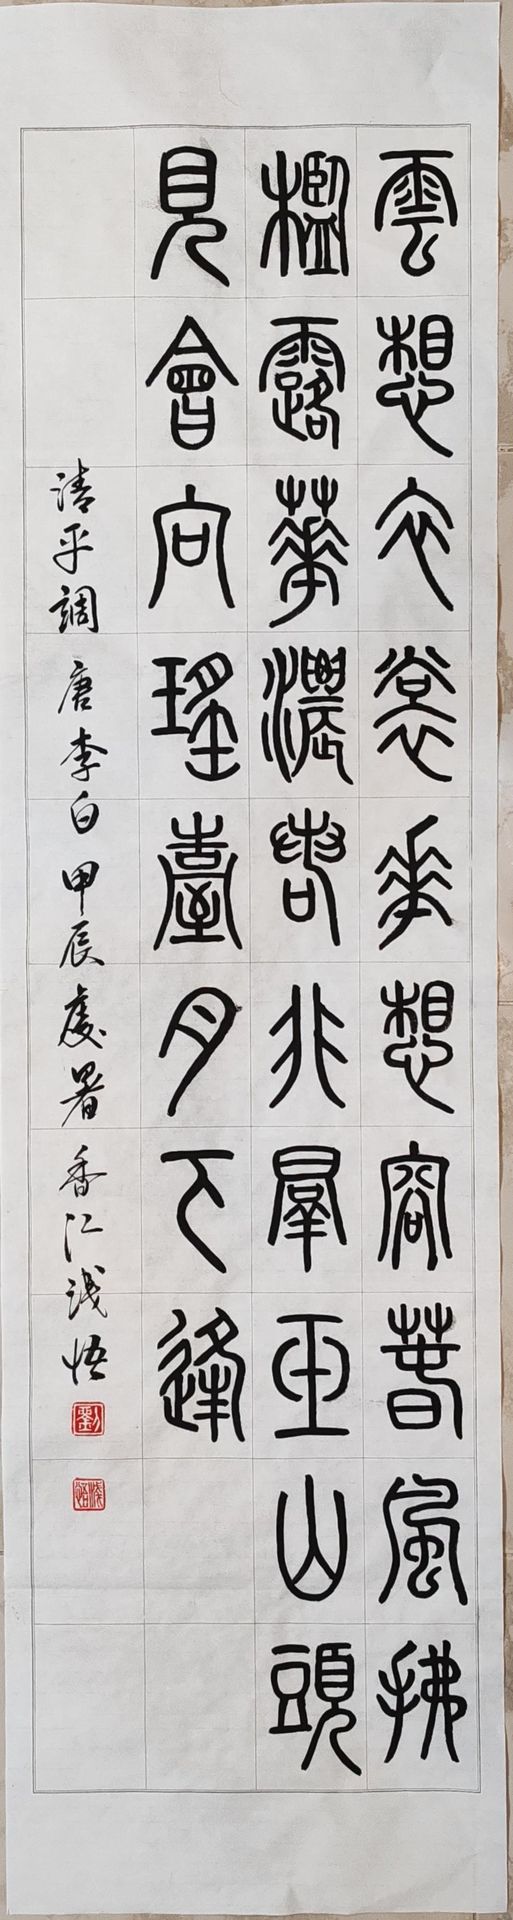 雲想衣裳花想容萅風拂
檻露華濃若非羣玉山頭
見會向瑤臺月下逢
清平調 唐李白 甲辰處暑 香江浅悟
劉
浅悟